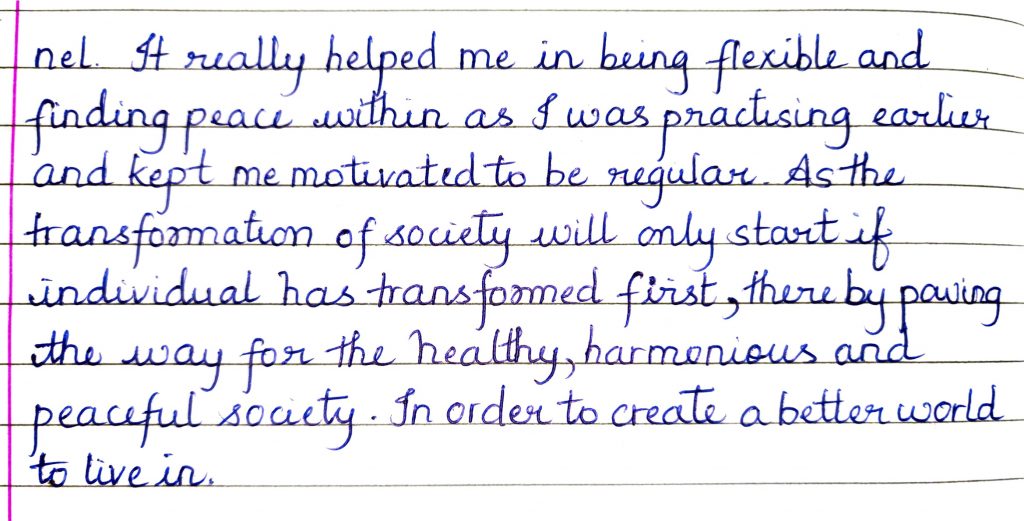 nel. It really helped me in being flexible and
finding peace within as I was practising earlier
and kept me motivated to be regular. As the
transformation of society will only start if
individual has transformed first, thereby paving
the way for the healthy, harmonious and
peaceful society. In order to create a better world
to live in.